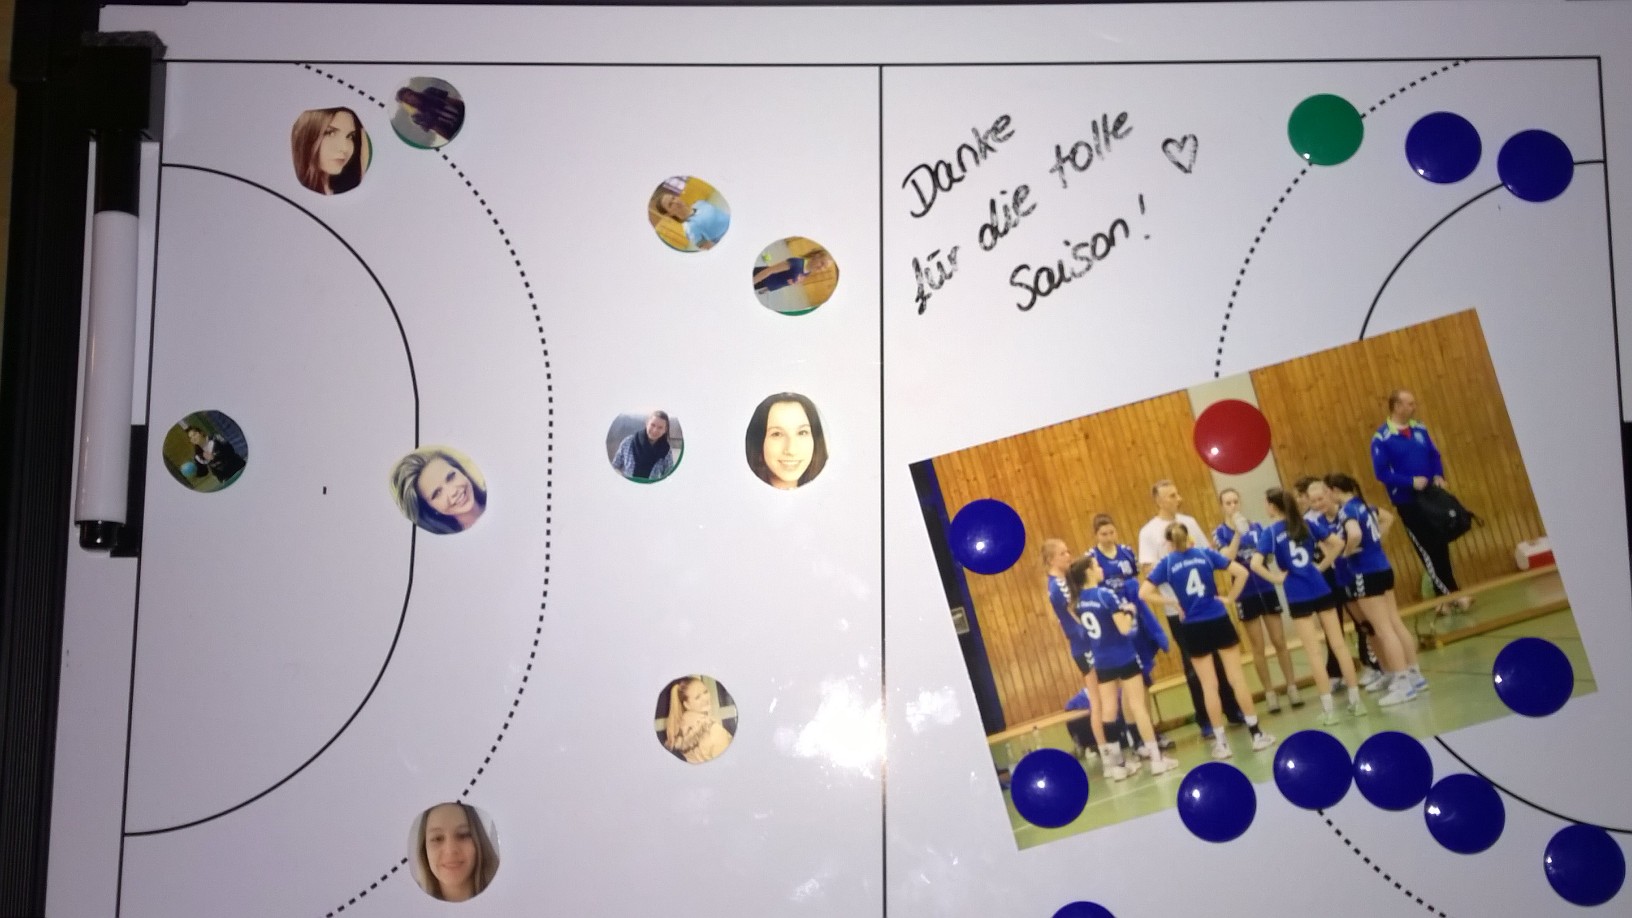 Danke
für die tolle
Saison! ♡
10
7
4
5
9